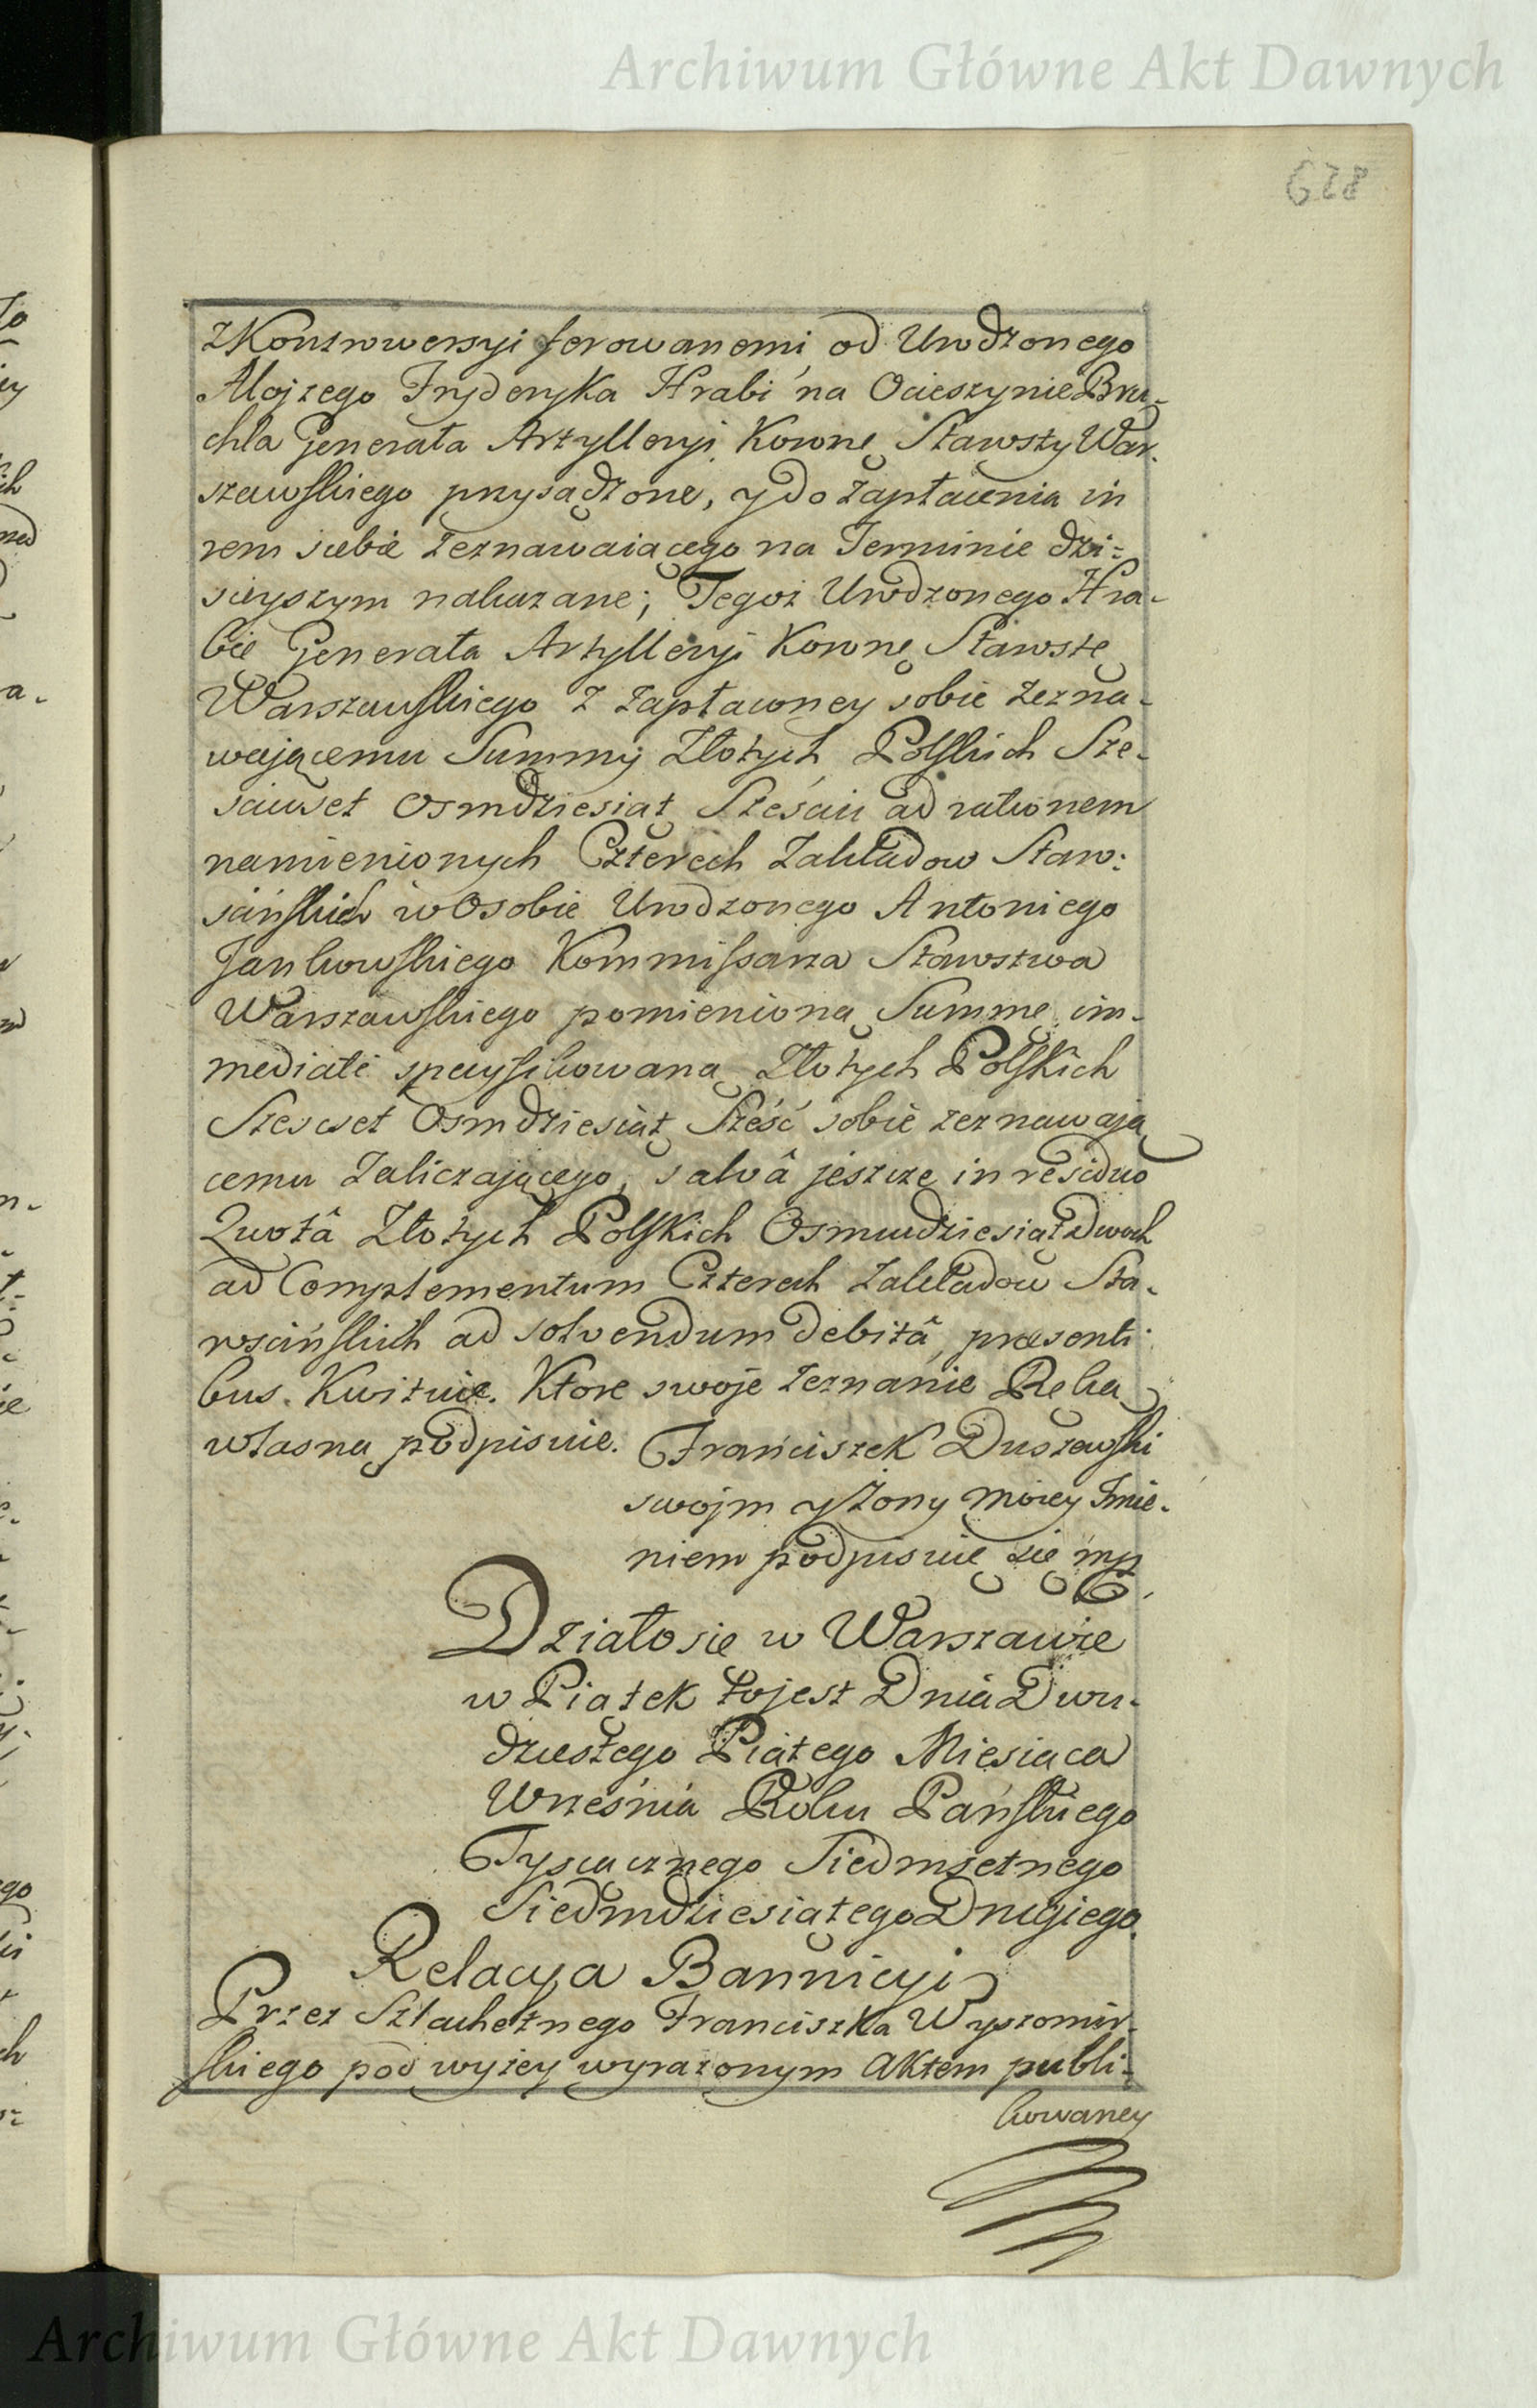 Archiwum Główne Akt Dawnych
628
z Kontrowersyi ferowanemi od Urodzonego
Alojzego Fryderyka Hrabi na Ocieszynie Bru-
chla Generała Artylleryi Koronnę Starosty War-
szawskiego przysądzone, y do zapłacenia in
rem siebie zeznawaiącego na Terminie dzi-
sieyszym nakazane; Tegoż Urodzonego Hra-
bię Generała Artylleryi Koronnę Starostę
Warszawskiego z zapłaconey sobie zezna-
wającemu Summy Złotych Polskich Sze-
sciuset Osmdziesiąt Sześciu ad rationem
namienionych Czterech Zakładow Staro-
ścińskich w Osobie Urodzonego Antoniego
Jankowskiego Kommissarza Starostwa
Warszawskiego pomienioną Summę im-
mediate specyfikowaną Złotych Polskich
Szescset Osmdziesiąt Sześć sobie zeznawają
cemu Zaliczającego, salvâ jeszcze in residuo
Quotâ Złotych Polskich Osmudziesiąt Dwoch
ad Complementum Czterech Zakładow Sta-
rościńskich ad solvendum debitâ, præsenti-
bus. Kwituie. Ktore swoje zeznanie Ręką
własną podpisuie. Franciszek Duszewski
swojm y Żony moiey Jmie-
niem podpisuię się mp
Działo sie w Warszawie
w Piątek to jest Dnia Dwu-
dziestego Piątego Miesiąca
Września Roku Pańskiego
Tysiącznego Siedmsetnego
Siedmdziesiątego Drugiego.
Relacya Bannicyi
Przez Szlachetnego Franciszka Wyszomir-
skiego pod wyżey wyrażonym Aktem publi-
kowaney
Archiwum Główne Akt Dawnych